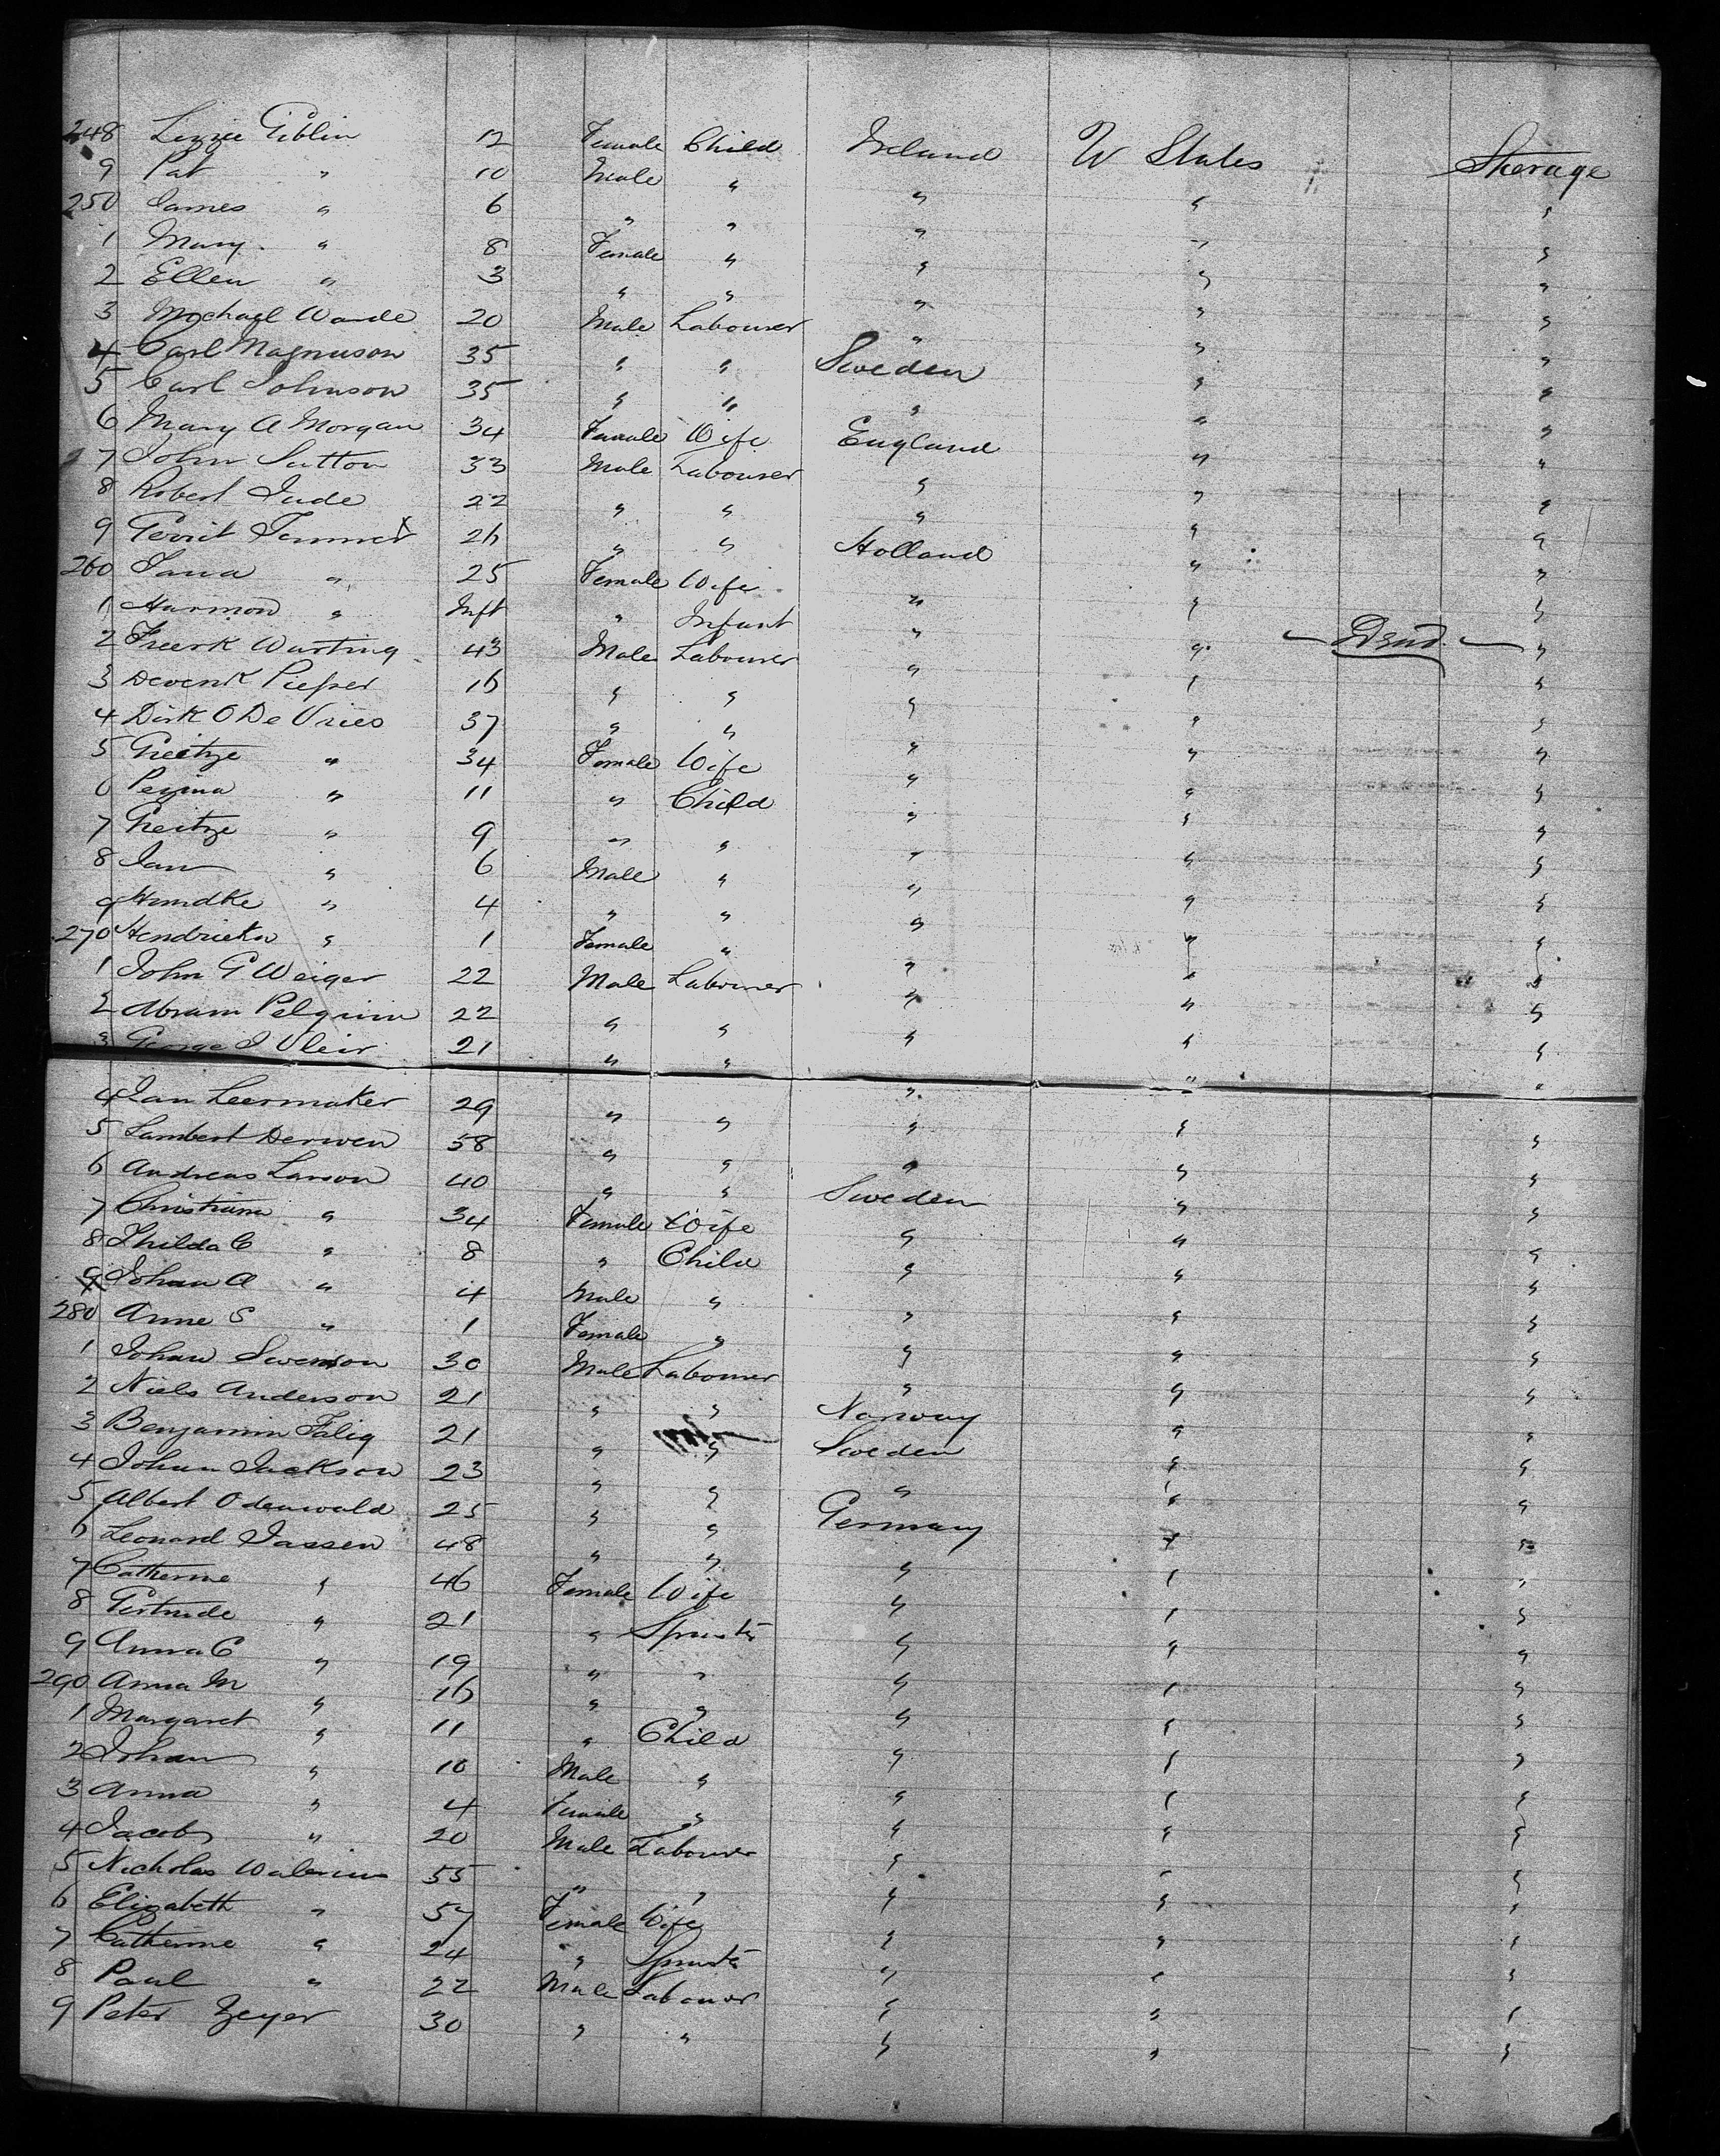 248 Lizzie Giblin 12 Female Child Ireland U States Sterage
9 Pat " 10 Male " " " "
250 James " 6 " " " " "
1 Mary " 8 Female " " " "
2 Ellen " 3 " " " " "
3 Michael Warde 20 Male Labourer " " "
4 Carl Magnuson 35 " " Sweden " "
5 Carl Johnson 35 " " " " "
6 Mary A Morgan 34 Female Wife England " "
7 John Sutton 33 Male Labourer " " "
8 Robert Jude 22 " " " " "
9 Gerrit 26 " " Holland " "
260 " 25 Female Wife " " "
1 Harmon " Inft " Infant " " Dead "
2 Freerk Warting 43 Male Labourer " " "
3 Pieper 16 " " " " "
4 Dirk O De Vries 37 " " " " "
5 Greitze " 34 Female Wife " " "
6 " 11 " Child " " "
7 Greitze " 9 " " " " "
8 Jan " 6 Male " " " "
9 " 4 " " " " "
270 " 1 Female " " " "
1 John G Weiger 22 Male Labourer " " "
2 Abram Pelgrim 22 " " " " "
3 George J Vleir 21 " " " " "
4 Jan Leermaker 29 " " " " "
5 Lambert Derwen 58 " " " " "
6 Andreas Larson 40 " " Sweden " "
7 Christiana " 34 Female Wife " " "
8 Thilda C " 8 " Child " " "
9 Johan A " 4 Male " " " "
280 Anne S " 1 Female " " " "
1 Johan Swenson 30 Male Labourer " " "
2 Niels Anderson 21 " " Norway " "
3 Benjamin Falig 21 " " Sweden " "
4 Johan Jackson 23 " " " " "
5 Albert Odenwald 25 " " Germany " "
6 Leonard Jassen 48 " " " " "
7 Catherine " 46 Female Wife " " "
8 Gertrude " 21 " Spinster " " "
9 Anna C " 19 " " " " "
290 Anna M " 16 " " " " "
1 Margaret " 11 " Child " " "
2 Johan " 10 Male " " " "
3 Anna " 4 Female " " " "
4 Jacob " 20 Male Labourer " " "
5 Nicholas Walerius 55 " " " " "
6 Elizabeth " 57 Female Wife " " "
7 Catherine " 24 " Spinster " " "
8 Paul " 22 Male Labourer " " "
9 Peter Zeyer 30 " " " " "